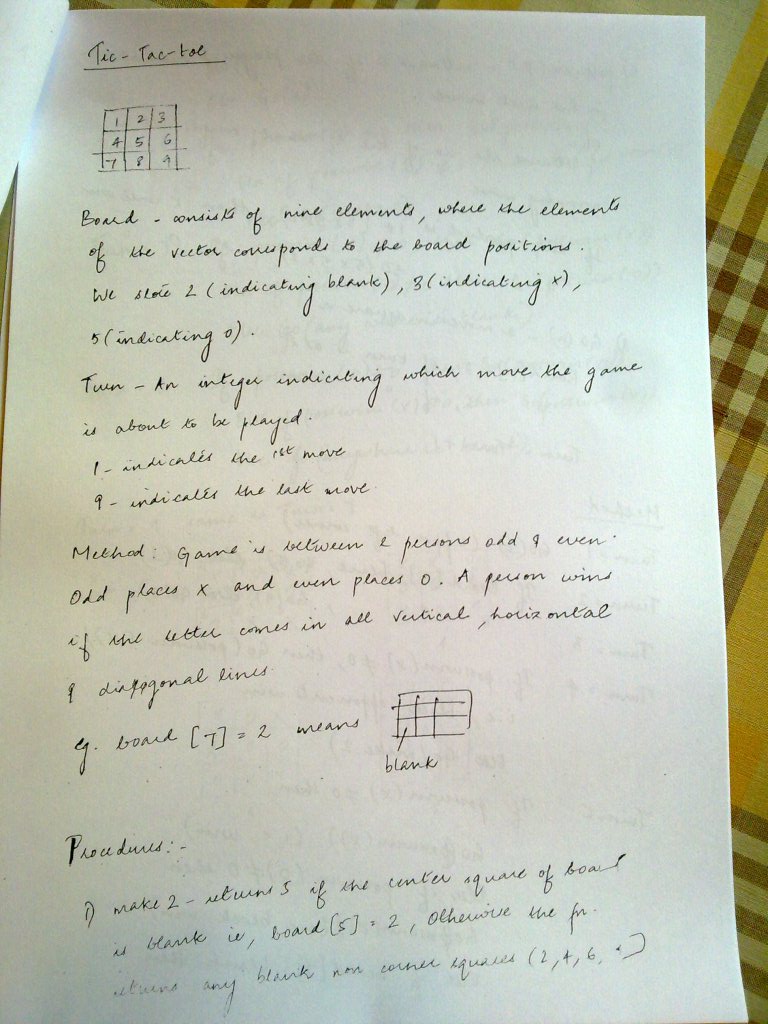 Tic-Tac-toe
1 2 3
4 5 6
7 8 9
Board - consists of nine elements, where the elements
of the vector corresponds to the board positions.
We store 2 (indicating blank), 3 (indicating x),
5 (indicating 0).
Turn - An integer indicating which move the game
is about to be played.
1 - indicates the 1st move
9 - indicates the last move.
Method: Game is between 2 persons odd & even.
Odd places x and even places 0. A person wins
if the letter comes in all vertical, horizontal
& diagonal lines.
eg. board [7] = 2 means
blank
Procedures:-
1) make 2 - returns 5 if the center square of board
is blank ie, board [5] = 2, Otherwise the fn.
returns any blank non corner squares (2, 4, 6,